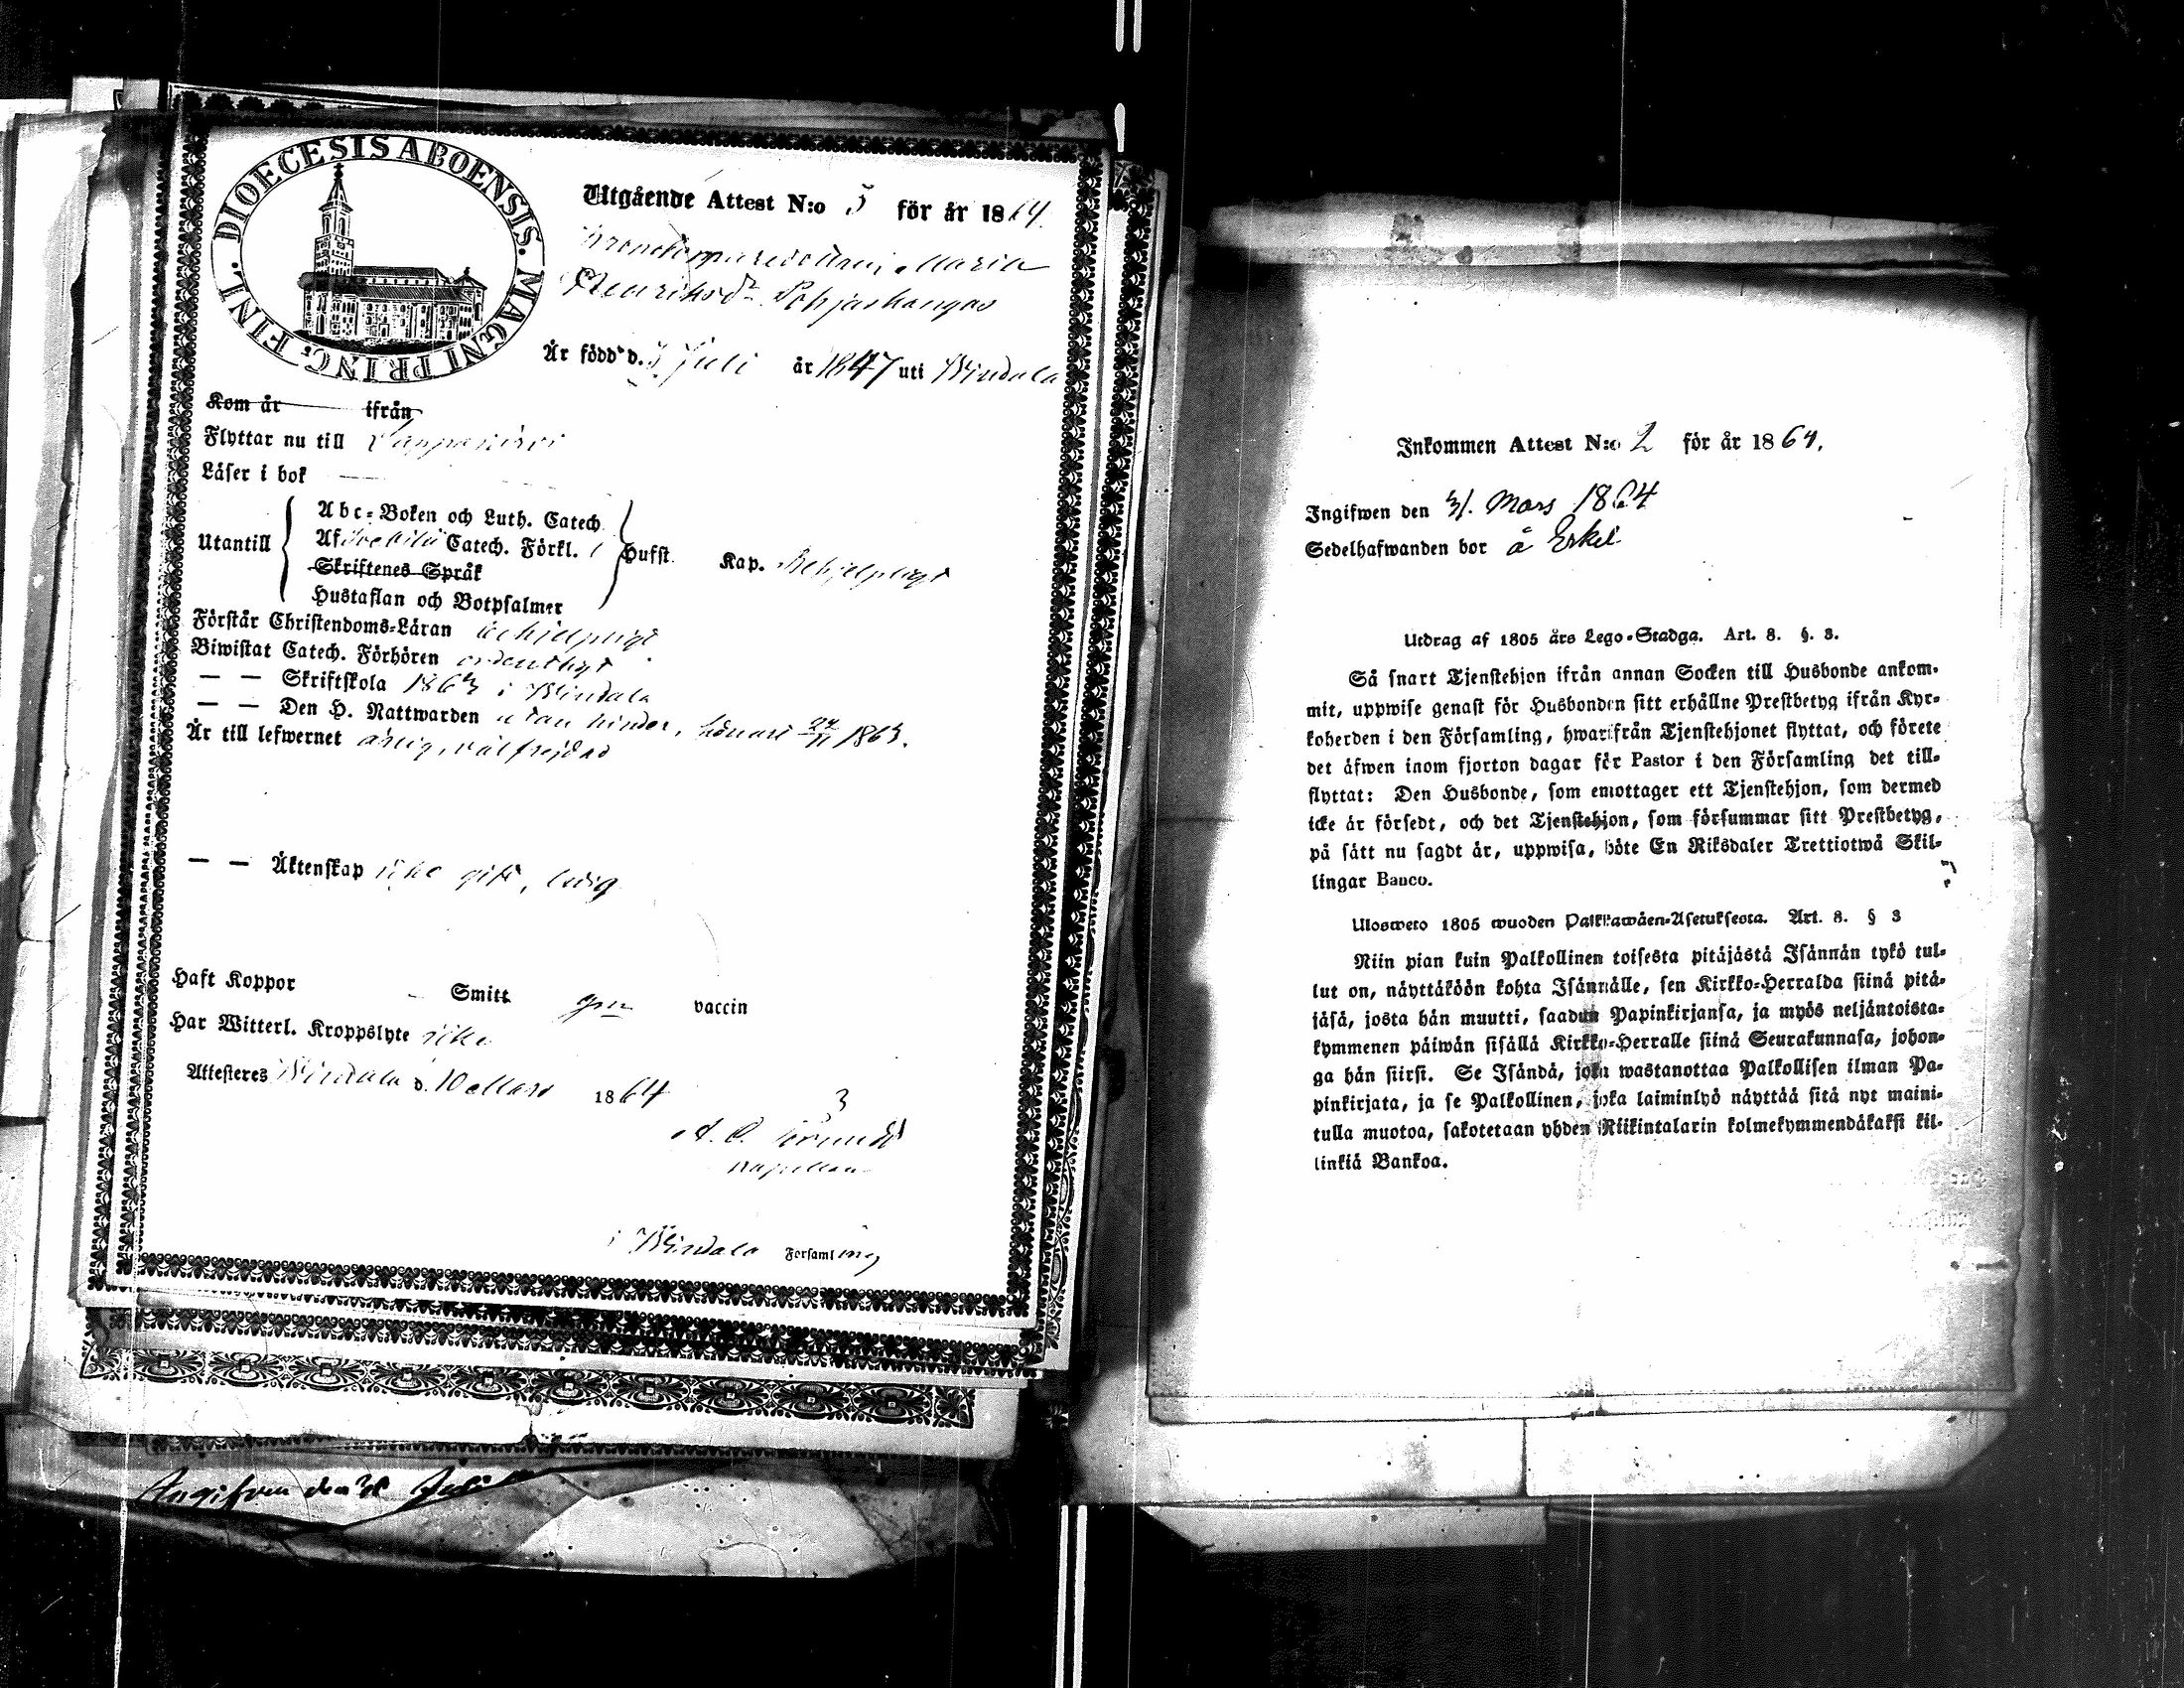 DIOECESIS ABOENSIS. MAGNI PRINC. FINL.
Utgående Attest N:o 5 för år 1864.
Maria
Henriksdr Pohjashangas
Är född d. 3 Juli år 1847 uti Windala
Kom år ifrån
Flyttar nu till Lappajärvi
Läser i bok
Utantill
Abc-Boken och Luth. Catech.
Af Svebilii Catech. Förkl. Hufst. Kap. Behjelpligt
Skriftenes Språk
Hustaflan och Botpsalmer
Förstår Christendoms-Läran behjelpligt
Biwistat Catech. Förhören ordentligt
— — Skriftskola 1863 i Windala
— — Den H. Nattwarden utan hinder, senast 22/11 1863.
Är till lefwernet ärlig, välfrejdad
— — Äktenskap icke gift, ledig
Haft Koppor Smitt genom vaccin
Har Witterl. Kroppslyte icke
Attesteres Windala d. 10 Mars 1864
3
A. C.
Kapellan
i Windala Forsamling
Ingifven den Juli
Inkommen Attest N:o 2 för år 1864.
Ingifwen den 31. Mars 1864
Sedelhafwanden bor å Erkel
Utdrag af 1805 års Lego-Stadga. Art. 8. §. 3.
Så snart Tjenstehjon ifrån annan Socken till Husbonde ankom-
mit, uppwise genast för Husbonden sitt erhållne Prestbetyg ifrån Kyr-
koherden i den Församling, hwarifrån Tjenstehjonet flyttat, och förete
det äfwen inom fjorton dagar för Pastor i den Församling det till-
flyttat: Den Husbonde, som emottager ett Tjenstehjon, som dermed
icke är försedt, och det Tjenstehjon, som försummar sitt Prestbetyg,
på sätt nu sagdt är, uppwisa, böte En Riksdaler Trettiotwå Skil-
lingar Banco.
Ulosweto 1805 wuoden Palkkawäen-Asetuksesta. Art. 8. § 3
Niin pian kuin Palkollinen toisesta pitäjästä Isännän tykö tul-
lut on, näyttäköön kohta Isännälle, sen Kirkko-Herralda siinä pitä-
jäsä, josta hän muutti, saadun Papinkirjansa, ja myös neljäntoista-
kymmenen päiwän sisällä Kirkko-Herralle siinä Seurakunnasa, johon-
ga hän siirsi. Se Isändä, joku wastanottaa Palkollisen ilman Pa-
pinkirjata, ja se Palkollinen, joka laiminlyö näyttää sitä nyt maini-
tulla muotoa, sakotetaan yhden Riikintalarin kolmekymmendäkaksi kil-
linkiä Bankoa.